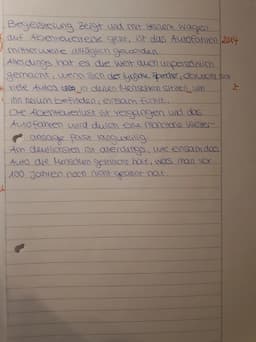 Begeisterung zeigt und mit seinem Wagen
auf Abenteuerreise geht, ist das Autofahren
mittlerweile alltäglich geworden.
Allerdings hat es die Welt auch unpersönlich
gemacht, wenn sich der lyrische Sprecher, obwohl
viele Autos in denen Menschen sitzen, um
ihn herum befinden, einsam fühlt.
Die Abenteuerlust ist vergangen und das
Autofahren wird durch eine monotone
ansage fast langweilig.
Am deutlichsten ist allerdings, wie einsam das
Auto die Menschen gemacht hat, was man vor
100 Jahren noch nicht geahnt hat.